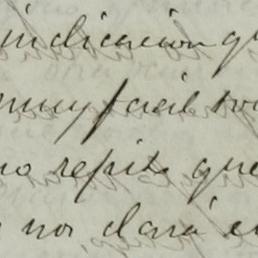 indicacion q
muy facil tr
no repito que
nos dará e